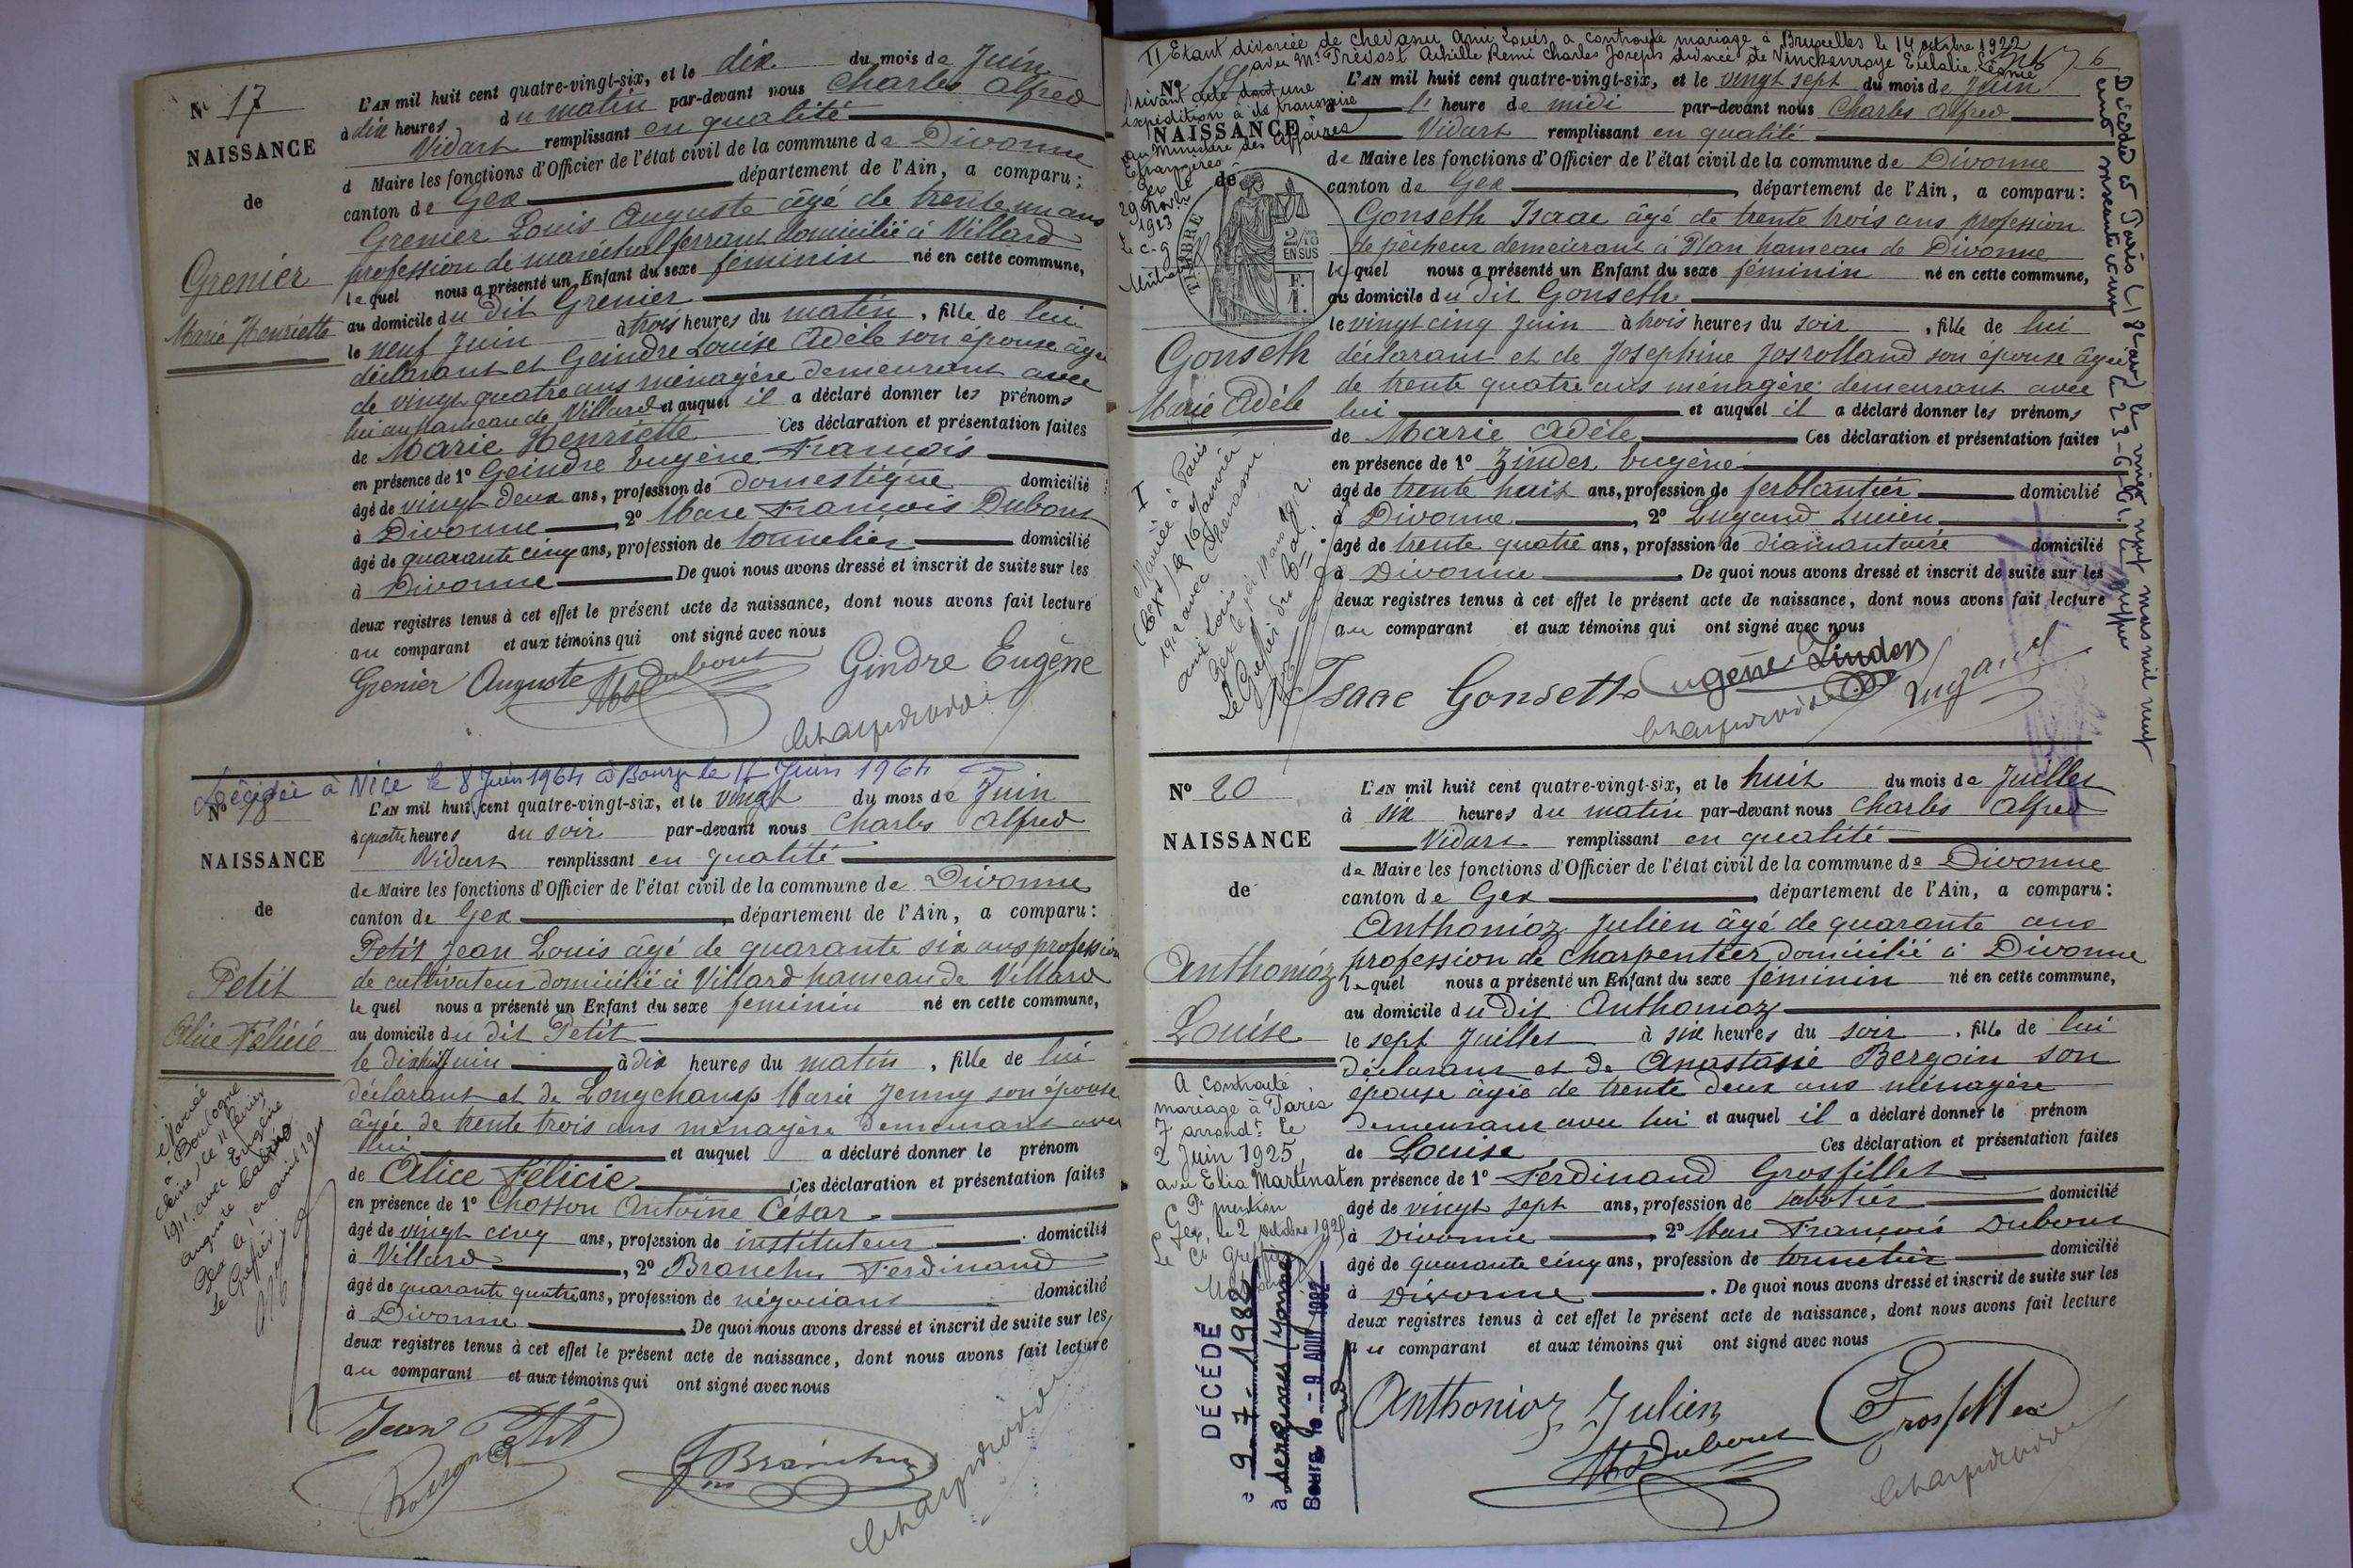 N° 17
NAISSANCE
de
Grenier
Marie Henriette
L'AN mil huit cent quatre-vingt-six, et le dix du mois de Juin
à dix heures du matin par-devant nous Charles Alfred
Vidart remplissant en qualité
d Maire les fonctions d'Officier de l'état civil de la commune de Divonne
canton de Gex département de l'Ain, a comparu :
Grenier Louis Auguste âgé de trente un ans
profession de maréchal ferrant domicilié à Villard
lequel nous a présenté un Enfant du sexe féminin né en cette commune,
au domicile du dit Grenier
le neuf Juin à trois heures du matin, fille de lui
déclarant et Geindre Louise Adèle son épouse âgée
de vingt quatre ans ménagère demeurant avec
lui au hameau de Villard et auquel il a déclaré donner les prénoms
de Marie Henriette Ces déclaration et présentation faites
en présence de 1° Geindre Eugène François
âgé de vingt deux ans, profession de domestique domicilié
à Divonne, 2° Marc François Dubout
âgé de quarante cinq ans, profession de tonnelier domicilié
à Divonne De quoi nous avons dressé et inscrit de suite sur les
deux registres tenus à cet effet le présent acte de naissance, dont nous avons fait lecture
au comparant et aux témoins qui ont signé avec nous
Grenier Auguste Dubout Gindre Eugène
Décédée à Nice le 8 Juin 1964 à Bourg le 17 Juin 1964
N° 18
NAISSANCE
de
Petit
Alice Félicie
Mariée
à Boulogne
Seine, le 11 février
1911 avec Eugène
Auguste
Gex le avril 1911
Le Greffier
L'AN mil huit cent quatre-vingt-six, et le vingt du mois de Juin
à quatre heures du soir par-devant nous Charles Alfred
Vidart remplissant en qualité
de Maire les fonctions d'Officier de l'état civil de la commune de Divonne
canton de Gex, département de l'Ain, a comparu :
Petit Jean Louis âgé de quarante six ans profession
de cultivateur domicilié à Villard hameau de Villard
lequel nous a présenté un Enfant du sexe féminin né en cette commune,
au domicile du dit Petit
le dix huit Juin à dix heures du matin, fille de lui
déclarant et de Longchamp Marie Jenny son épouse
âgée de trente trois ans ménagère demeurant avec
lui et auquel a déclaré donner le prénom
de Alice Félicie Ces déclaration et présentation faites
en présence de 1° Chosson Antoine César
âgé de vingt cinq ans, profession de instituteur domicilié
à Villard, 2° Branchu Ferdinand
âgé de quarante quatre ans, profession de négociant domicilié
à Divonne De quoi nous avons dressé et inscrit de suite sur les
deux registres tenus à cet effet le présent acte de naissance, dont nous avons fait lecture
au comparant et aux témoins qui ont signé avec nous
Jean Petit
Branchu
II Etant divorcée de Chevasson Ami Louis, a contracté mariage à Bruxelles le 14 octobre 1922
avec Mr Prévost Achille Remi Charles Joseph divorcé de Vinckenroye Eulalie Léonie
6
N° 19
suivant acte dont une
expédition a été transmise
au Ministère des Affaires
Etrangères
Gex
29 Novbre
1923
Le c-g
NAISSANCE
de
TIMBRE
2/10
EN SUS
F.
1.
Gonseth
Marie Adèle
I
Mariée à Paris
le 16 janvier
1912 avec Chevasson
Ami Louis
Gex le Mars 1912.
Le Greffier du
L'AN mil huit cent quatre-vingt-six, et le vingt sept du mois de Juin
à 1' heure de midi par-devant nous Charles Alfred
Vidart remplissant en qualité
de Maire les fonctions d'Officier de l'état civil de la commune de Divonne
canton de Gex, département de l'Ain, a comparu :
Gonseth Isaac âgé de trente trois ans profession
de pêcheur demeurant à Plan hameau de Divonne
lequel nous a présenté un Enfant du sexe féminin né en cette commune,
au domicile du dit Gonseth
le vingt cinq Juin à trois heures du soir, fille de lui
déclarant et de Josephine Josrolland son épouse âgée
de trente quatre ans ménagère demeurant avec
lui et auquel il a déclaré donner les prénoms
de Marie Adèle Ces déclaration et présentation faites
en présence de 1° Zinder Eugène
âgé de trente huit ans, profession de ferblantier domicilié
à Divonne, 2° Lugand Lucien
âgé de trente quatre ans, profession de diamantaire domicilié
à Divonne. De quoi nous avons dressé et inscrit de suite sur les
deux registres tenus à cet effet le présent acte de naissance, dont nous avons fait lecture
au comparant et aux témoins qui ont signé avec nous
Isaac Gonseth Eugène Zinder Lugand
Décédée à Paris (18e arr) le vingt neuf mars mil neuf
cent soixante un
N° 20
NAISSANCE
de
Anthonioz
Louise
A contracté
mariage à Paris
7 arrondt le
2 Juin 1925
avec Elia Martinat
Pr mention
Gex, le 2 octobre 1925
Le Cs Greffier
DÉCÉDÉ
9-7-1982
à Sergines (Yonne)
Bourg le - 9 AOUT 1982
L'AN mil huit cent quatre-vingt-six, et le huit du mois de Juillet
à six heures du matin par-devant nous Charles Alfred
Vidart remplissant en qualité
de Maire les fonctions d'Officier de l'état civil de la commune de Divonne
canton de Gex, département de l'Ain, a comparu :
Anthonioz Julien âgé de quarante ans
profession de charpentier domicilié à Divonne
lequel nous a présenté un Enfant du sexe féminin né en cette commune,
au domicile du dit Anthonioz
le sept Juillet à six heures du soir, fille de lui
déclarant et de Anastasie Bergoin son
épouse âgée de trente deux ans ménagère
demeurant avec lui et auquel il a déclaré donner le prénom
de Louise Ces déclaration et présentation faites
en présence de 1° Ferdinand Grosfillet
âgé de vingt sept ans, profession de sabotier domicilié
à Divonne 2° Marc François Dubout
âgé de quarante cinq ans, profession de tonnelier domicilié
à Divonne. De quoi nous avons dressé et inscrit de suite sur les
deux registres tenus à cet effet le présent acte de naissance, dont nous avons fait lecture
au comparant et aux témoins qui ont signé avec nous
Anthonioz Julien
Dubout